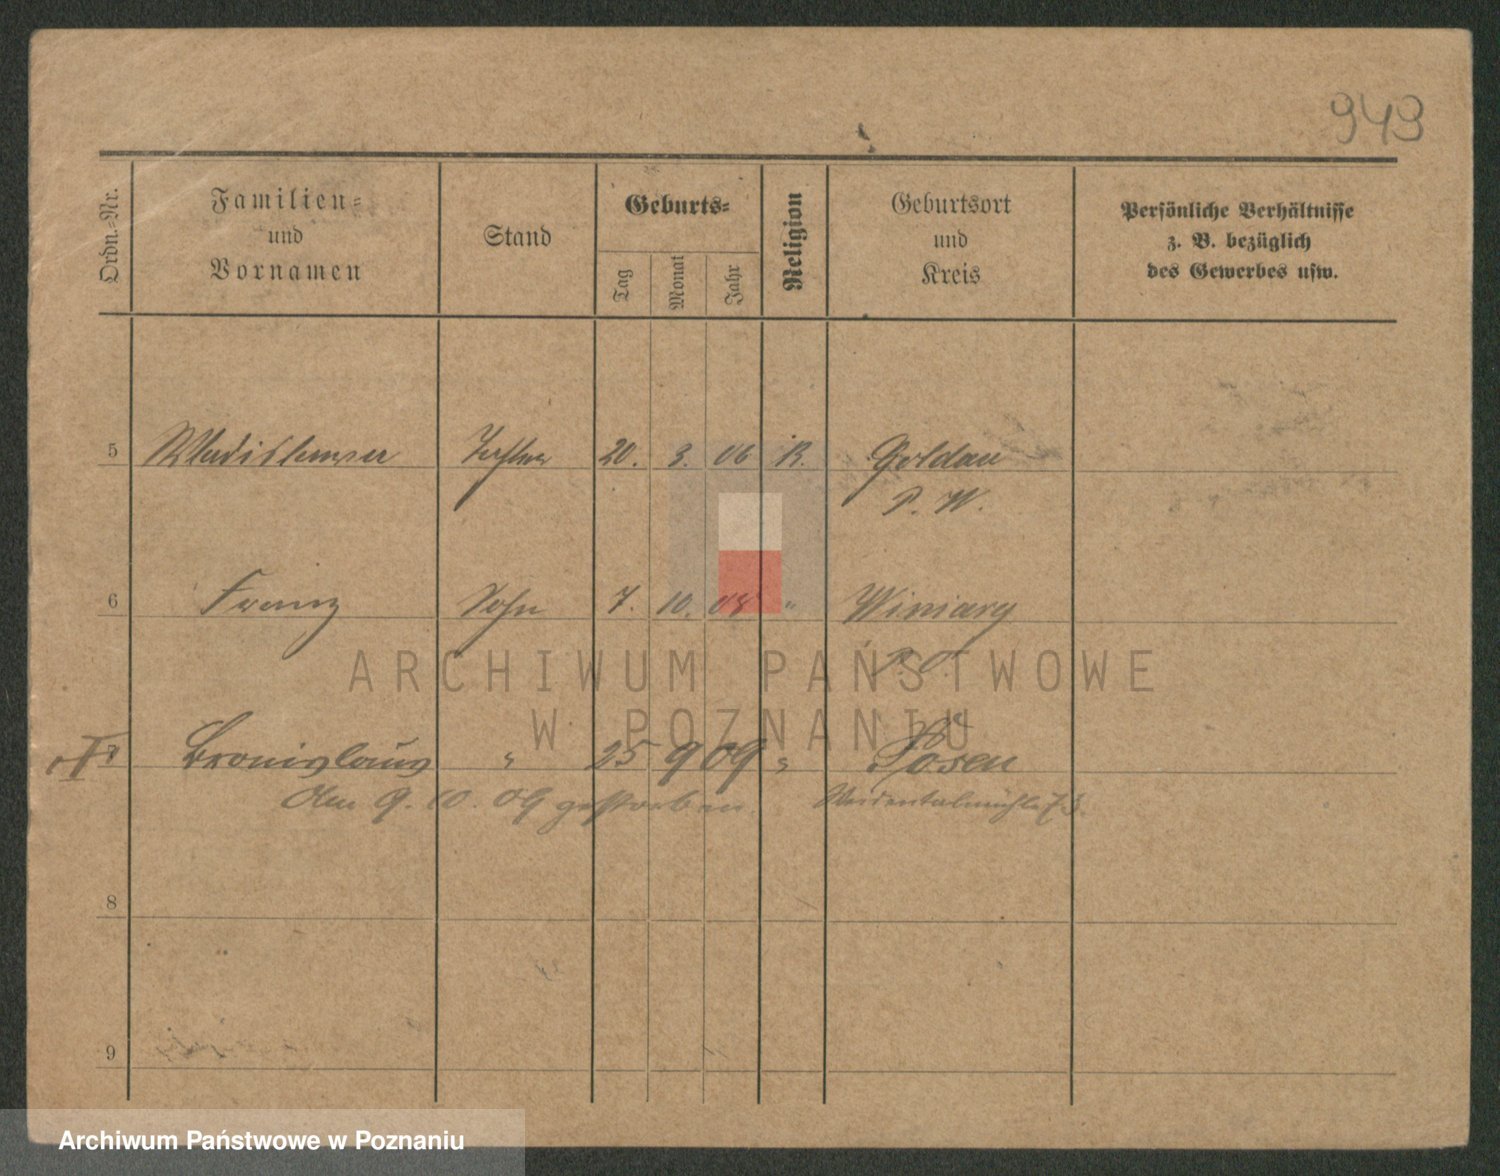 949
Ordn.-Nr.
Familien- und Vornamen
Stand
Geburts-
Tag Monat Jahr
Religion
Geburtsort und Kreis
Persönliche Verhältnisse z. B. bezüglich des Gewerbes usw.
5 Wladislawa Tochter 20. 3. 06 K. Goldau
P. W.
6 Franz Sohn 7. 10. 08 " Winiary
P. O.
ARCHIWUM PAŃSTWOWE
W POZNANIU
Bronislaus " 25 9 09 " Posen
Am 9. 10. 09 gestorben.
8
9
Archiwum Państwowe w Poznaniu